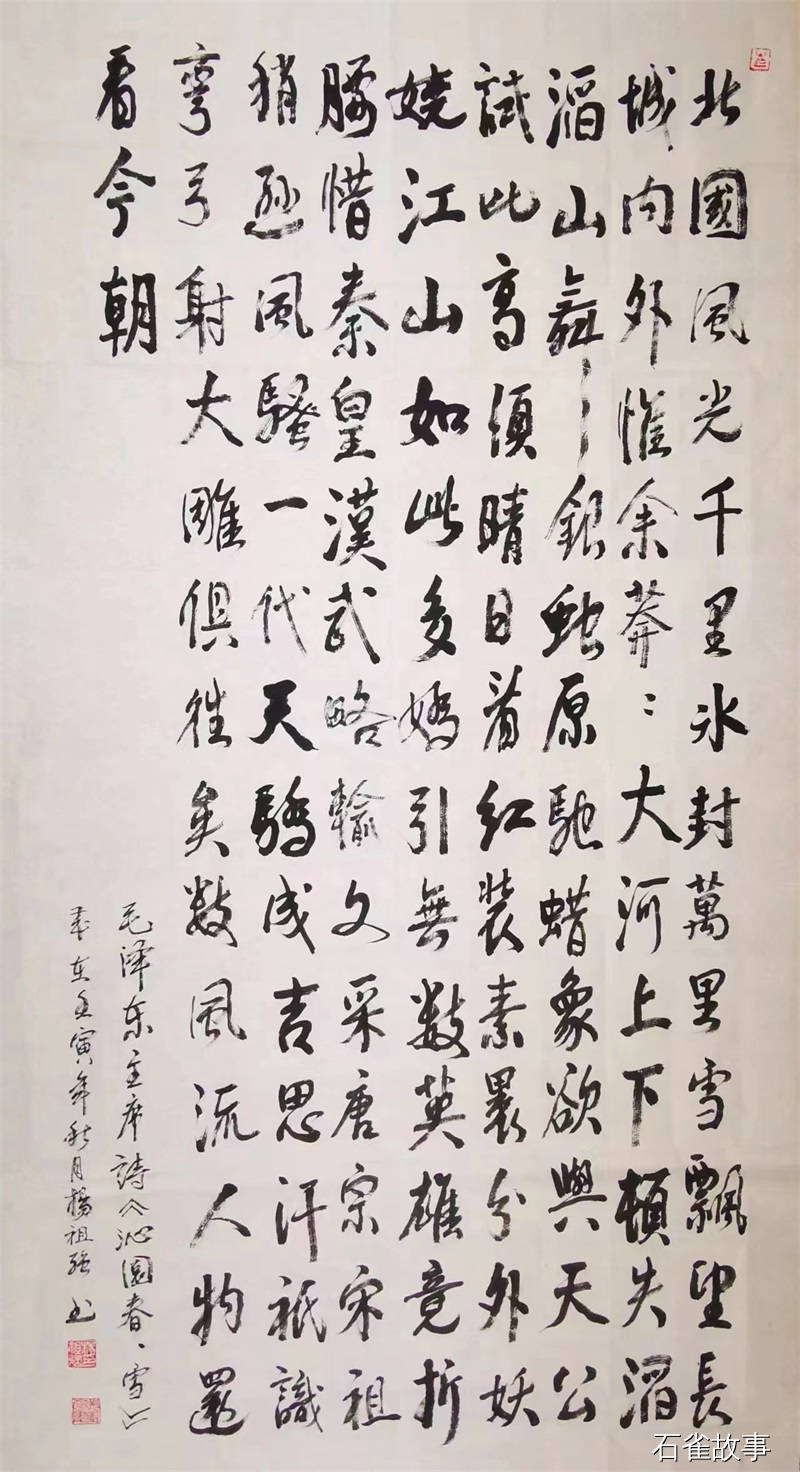 北國風光千里冰封萬里雪飄望長
城内外惟余莽〻大河上下頓失滔
滔山舞銀蛇原馳蜡象欲與天公
試比高須晴日看紅裝素裹分外妖
嬈江山如此多嬌引無數英雄竟折
腰惜秦皇漢武略輸文采唐宗宋祖
稍遜風騷一代天驕成吉思汗衹識
彎弓射大雕俱往矣數風流人物還
看今朝
毛泽东主席詩《沁園春、雪》
歲在壬寅年秋月楊祖強书
石雀故事